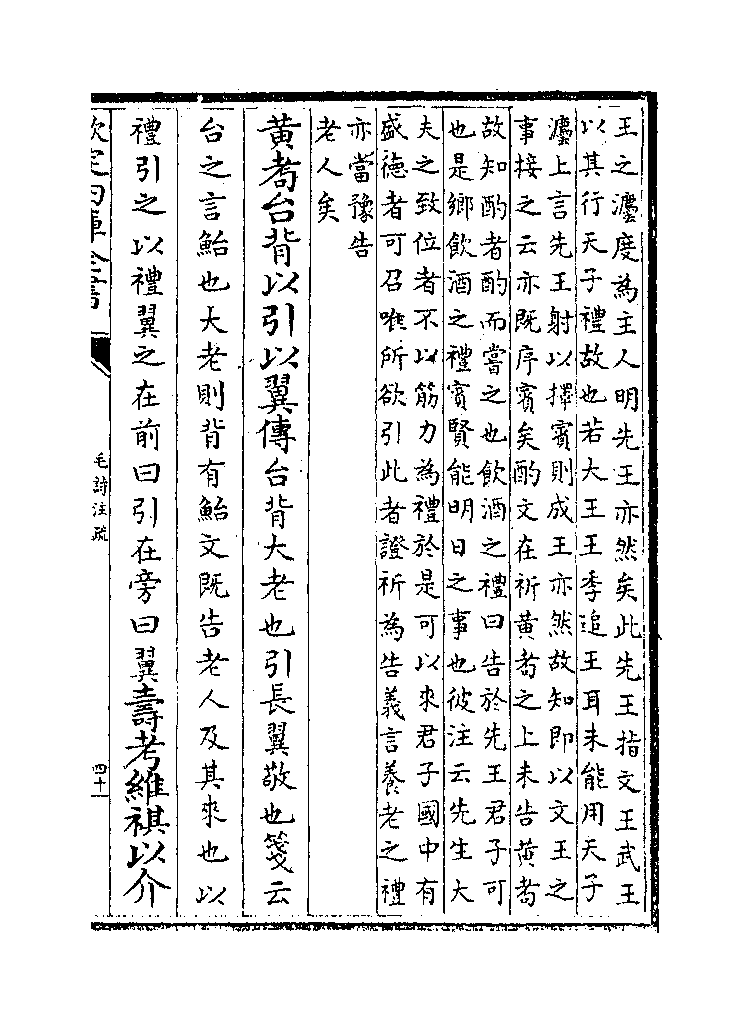 王之灋度為主人明先王亦然矣此先王指文王武王
以其行天子禮故也若大王王季追王耳未能用天子
灋上言先王射以擇賓則成王亦然故知即以文王之
事接之云亦既序賓矣酌文在祈黄耇之上未告黄耇
故知酌者酌而嘗之也飲酒之禮曰告於先王君子可
也是鄉飲酒之禮賓賢能明日之事也彼注云先生大
夫之致位者不以筋力為禮於是可以來君子國中有
盛德者可召唯所欲引此者證祈為告義言養老之禮
亦當豫告
老人矣
黄耇台背以引以翼傳台背大老也引長翼敬也箋云
台之言鮐也大老則背有鮐文既告老人及其來也以
禮引之以禮翼之在前曰引在旁曰翼壽考維祺以介
欽定四庫全書
毛詩注疏
四十一